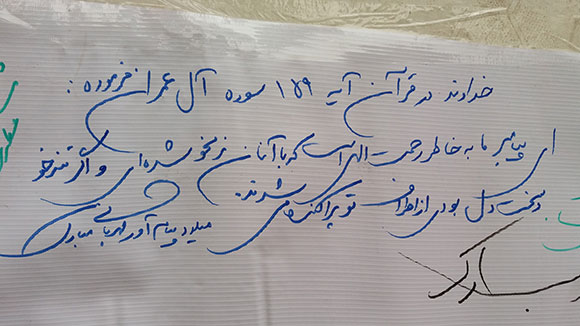 خداوند در قرآن آیه ۱۵۹ سوره آل عمران فرموده :
ای پیامبر ما به خاطر رحمت الهی است که با آنان نرمخو شده‌ای و اگر تندخو
و سخت دل بودی از اطراف تو پراکنده می شدند.
میلاد پیام آور مهربانی مبارک
مبارک